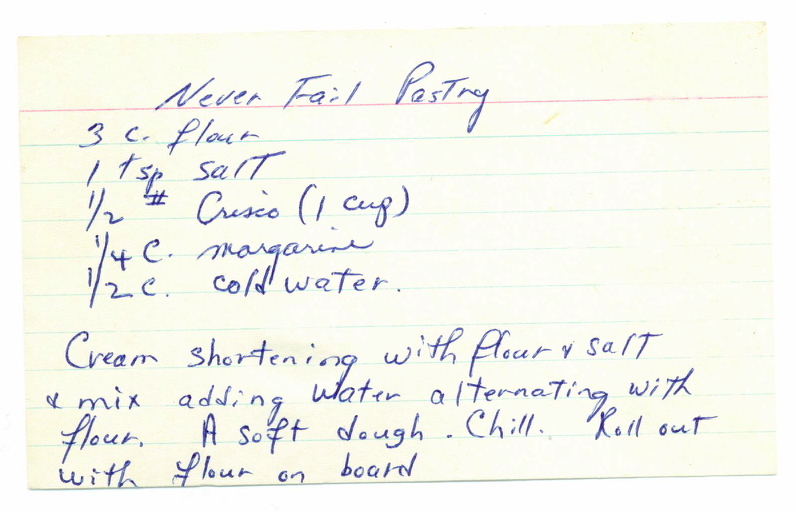 Never Fail Pastry
3 c. flour
1 tsp salt
1/2 # Crisco (1 cup)
1/4 C. margarine
1/2 c. cold water.
Cream shortening with flour & salt
& mix adding water alternating with
flour. A soft dough. Chill. Roll out
with flour on board